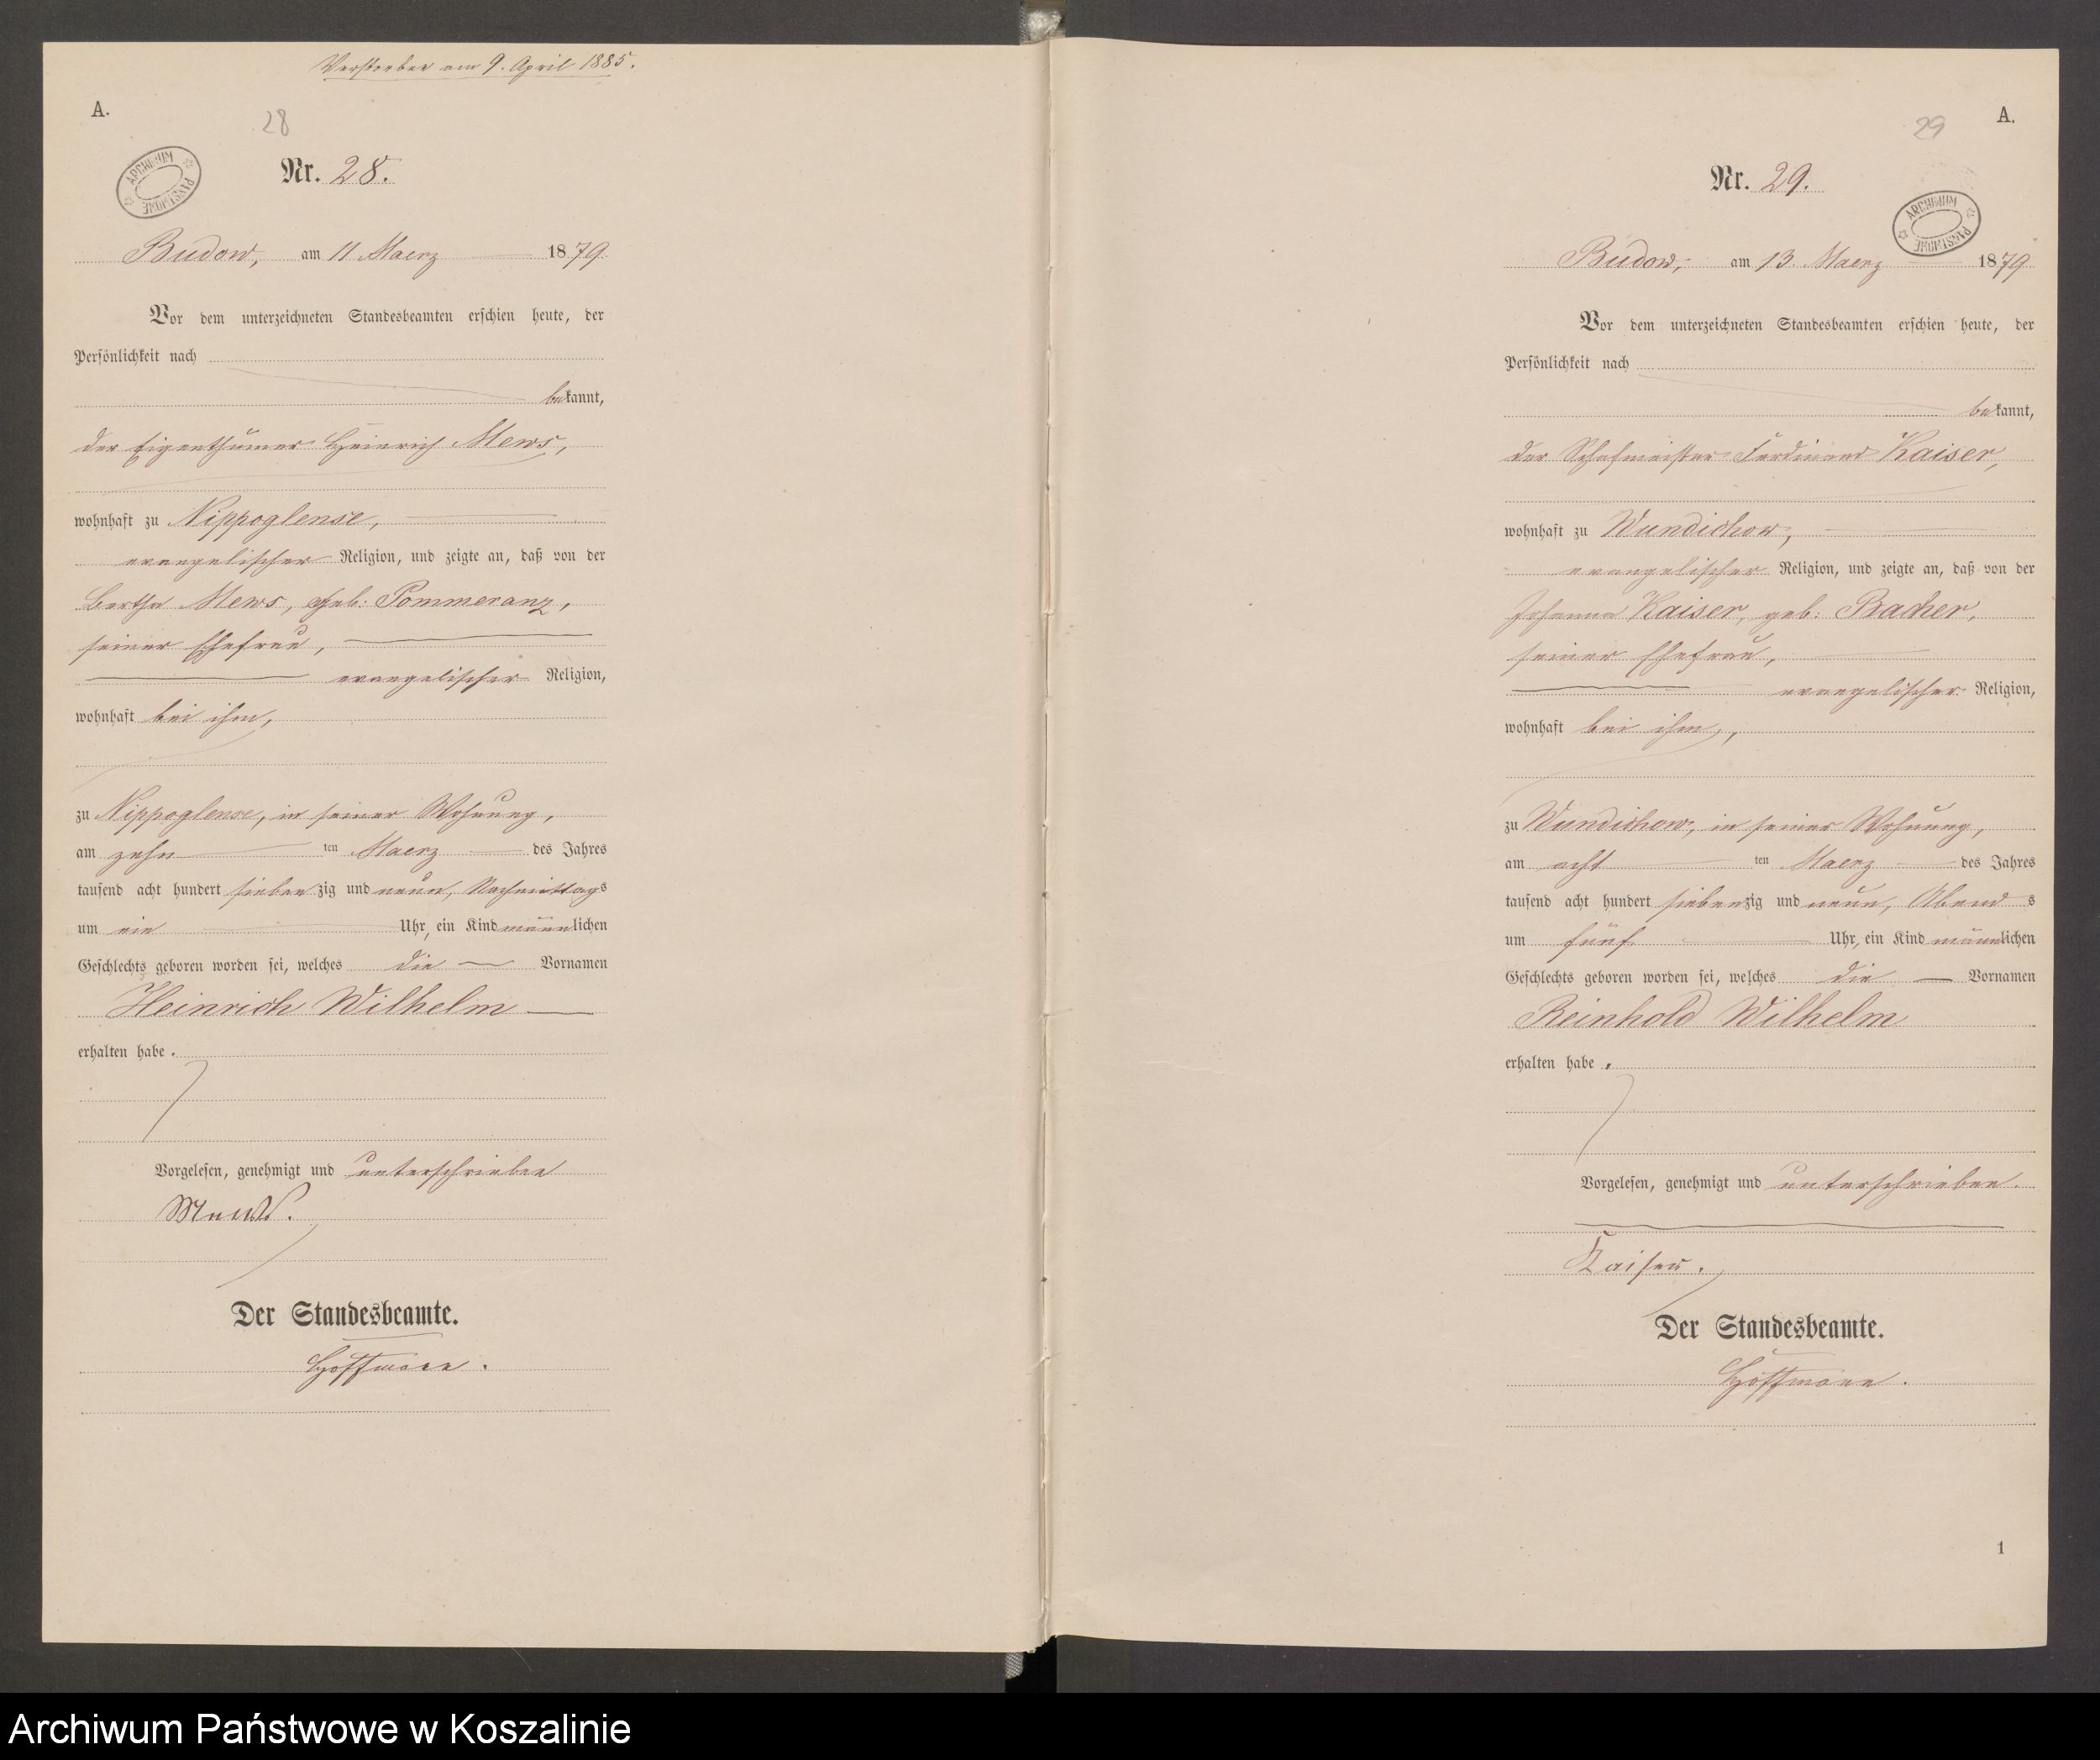 Verstorben am 9. April 1885.
A.
28
ARCHIWUM PAŃSTWOWE
Nr. 28.
Budow, am 11 Maerz 1879.
Vor dem unterzeichneten Standesbeamten erschien heute, der
Persönlichkeit nach
bekannt,
der Eigenthümer Heinrich Mews,
wohnhaft zu Nippoglense,
evangelischer Religion, und zeigte an, daß von der
Bertha Mews, geb: Pommeranz,
seiner Ehefrau,
evangelischer Religion,
wohnhaft bei ihm,
zu Nippoglense, in seiner Wohnung,
am zehn ten Maerz des Jahres
tausend acht hundert siebenzig und neun, Nachmittags
um ein Uhr, ein Kind männlichen
Geschlechts geboren worden sei, welches die Vornamen
Heinrich Wilhelm
erhalten habe.
Vorgelesen, genehmigt und unterschrieben
Mews.
Der Standesbeamte.
Hoffmann.
A.
29
ARCHIWUM PAŃSTWOWE
Nr. 29.
Budow, am 13. Maerz 1879
Vor dem unterzeichneten Standesbeamten erschien heute, der
Persönlichkeit nach
bekannt,
der Schafmeister Ferdinand Kaiser,
wohnhaft zu Wundichow,
evangelischer Religion, und zeigte an, daß von der
Johanna Kaiser, geb: Bacher,
seiner Ehefrau,
evangelischer Religion,
wohnhaft bei ihm,
zu Wundichow, in seiner Wohnung,
am acht ten Maerz des Jahres
tausend acht hundert siebenzig und neun, Abends
um fünf Uhr, ein Kind männlichen
Geschlechts geboren worden sei, welches die Vornamen
Reinhold Wilhelm
erhalten habe.
Vorgelesen, genehmigt und unterschrieben.
Kaiser.
Der Standesbeamte.
Hoffmann.
1
Archiwum Państwowe w Koszalinie